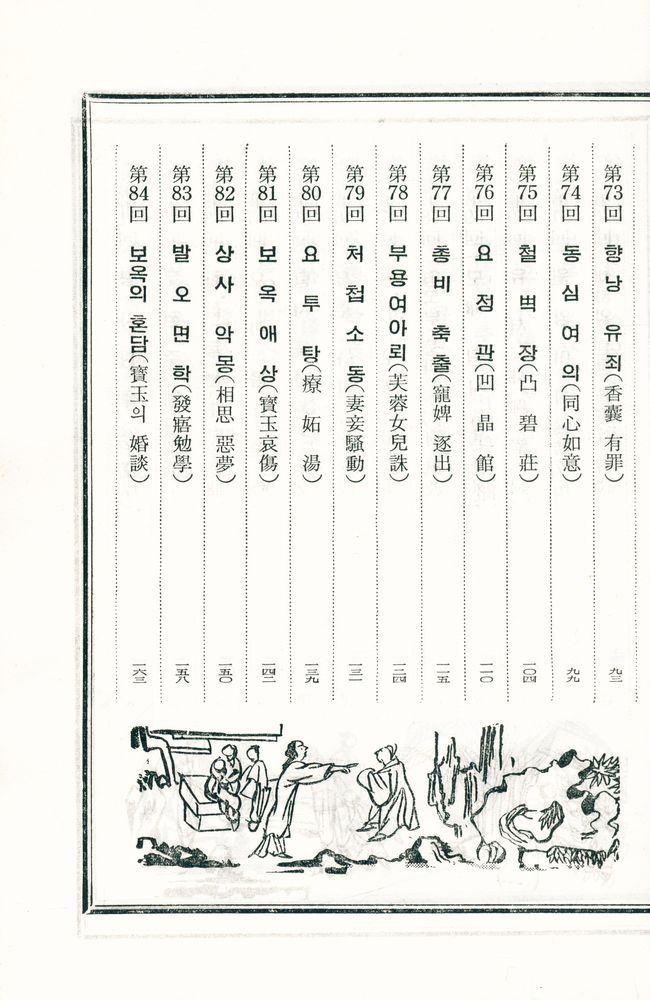 第73回 향낭 유죄(香囊 有罪) 九三
第74回 동심여의(同心如意) 九九
第75回 철벽장(凸碧莊) 一〇四
第76回 요정관(凹晶館) 一一〇
第77回 총비 축출(寵婢 逐出) 一一五
第78回 부용여아뢰(芙蓉女兒誄) 一二四
第79回 처첩소동(妻妾騷動) 一三一
第80回 요투탕(療妬湯) 一三九
第81回 보옥애상(寶玉哀傷) 一四二
第82回 상사악몽(相思 惡夢) 一五〇
第83回 발오면학(發寤勉學) 一五八
第84回 보옥의 혼담(寶玉의 婚談) 一六三